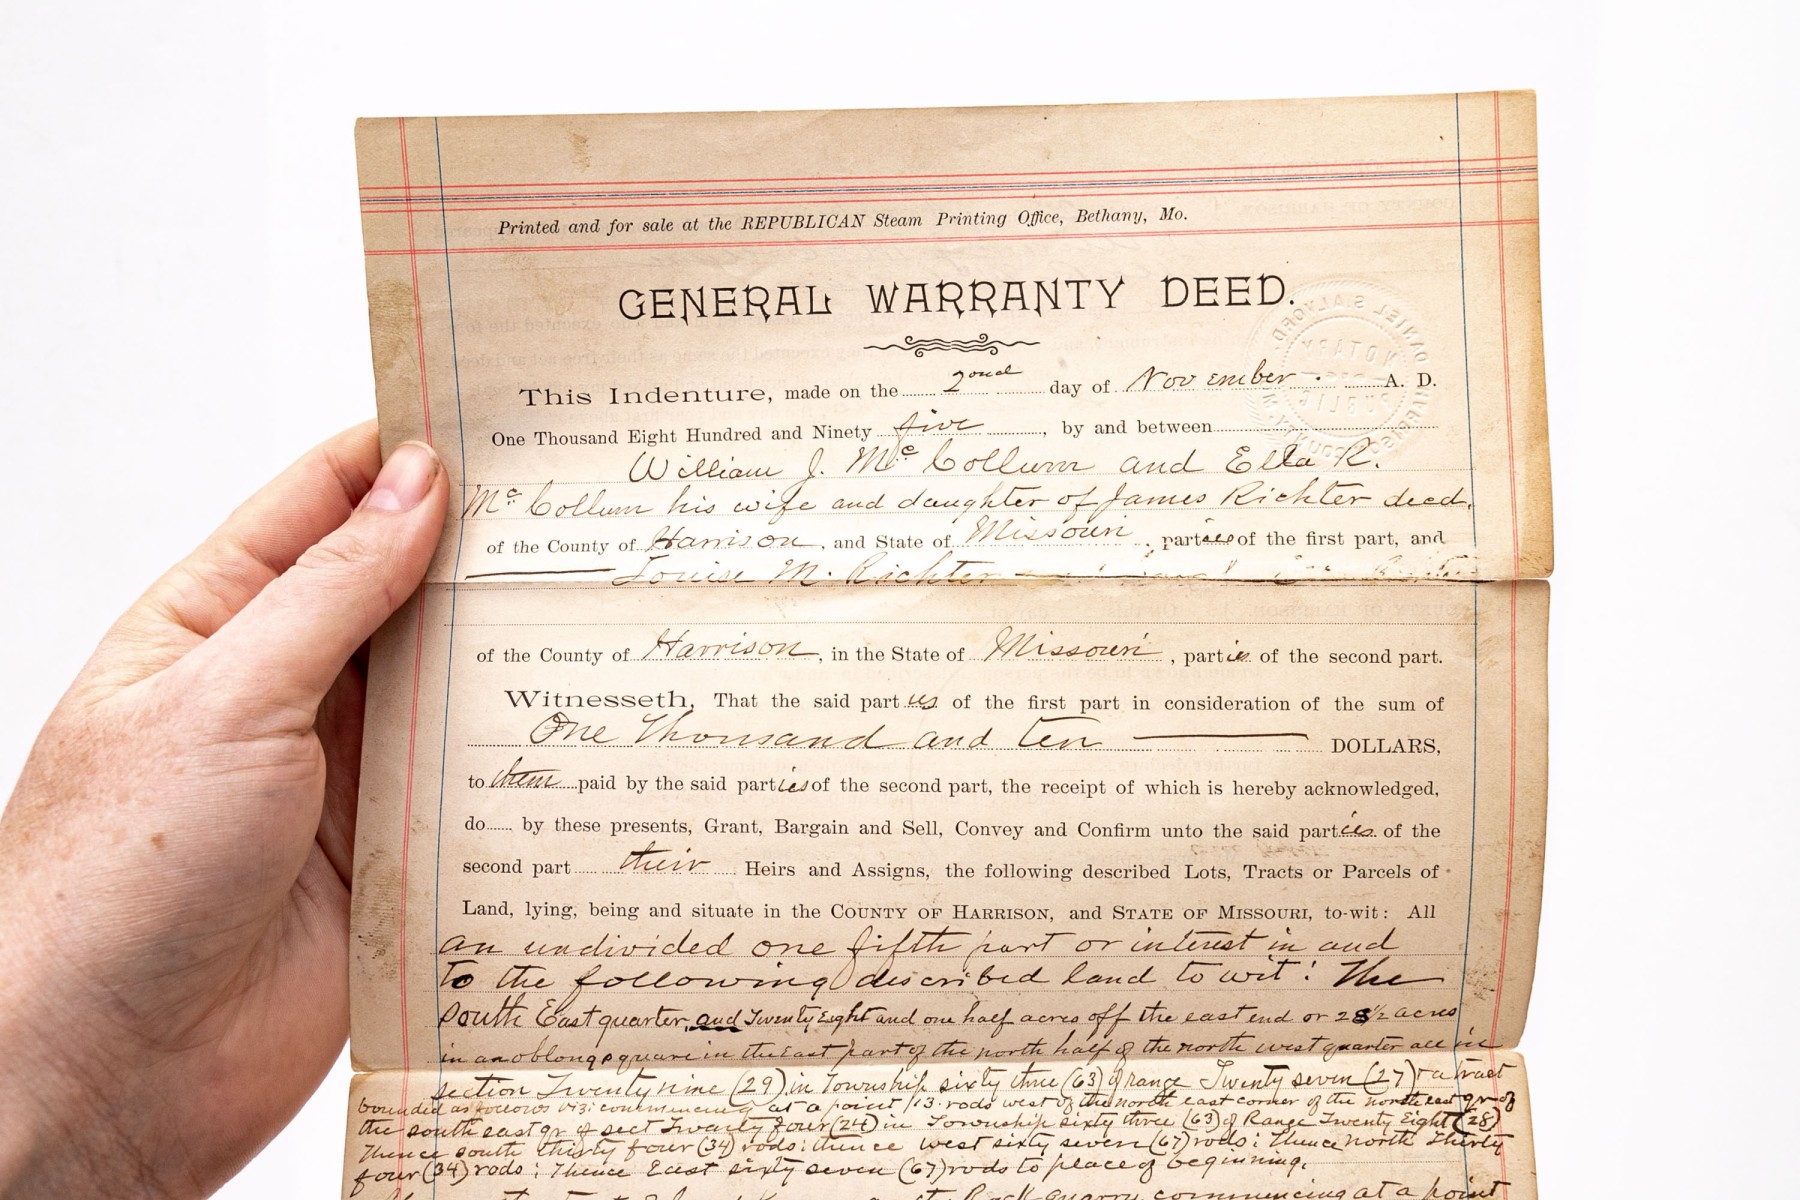 Printed and for sale at the REPUBLICAN Steam Printing Office, Bethany, Mo.
GENERAL WARRANTY DEED.
This Indenture, made on the 2ond day of November A. D.
One Thousand Eight Hundred and Ninety five, by and between
William J. Mc Collum and Ella R.
Mc Collum his wife and daughter of James Richter deed.
of the County of Harrison, and State of Missouri, parties of the first part, and
Louise M. Richter
of the County of Harrison, in the State of Missouri, parties of the second part.
Witnesseth, That the said parties of the first part in consideration of the sum of
One Thousand and ten DOLLARS,
to them paid by the said parties of the second part, the receipt of which is hereby acknowledged,
do by these presents, Grant, Bargain and Sell, Convey and Confirm unto the said parties of the
second part their Heirs and Assigns, the following described Lots, Tracts or Parcels of
Land, lying, being and situate in the COUNTY OF HARRISON, and STATE OF MISSOURI, to-wit: All
an undivided one fifth part or interest in and
to the following described land to wit: The
South East quarter, and Twenty Eight and one half acres off the east end or 28 1/2 acres
in an oblong square in the East part of the north half of the north west quarter all in
section Twenty nine (29) in Township sixty three (63) of range Twenty seven (27) + a tract
bounded as follows viz: commencing at a point 13 rods west of the north east corner of the north east qr of
the south east qr of sect Twenty four (24) in Township sixty three (63) of Range Twenty Eight (28)
Thence south thirty four (34) rods: thence west sixty seven (67) rods; Thence north Thirty
four (34) rods; Thence East sixty seven (67) rods to place of beginning.
Rock quarry, commencing at a point
DANIEL S. ALVORD.
NOTARY
PUBLIC
HARRISON COUNTY, MO